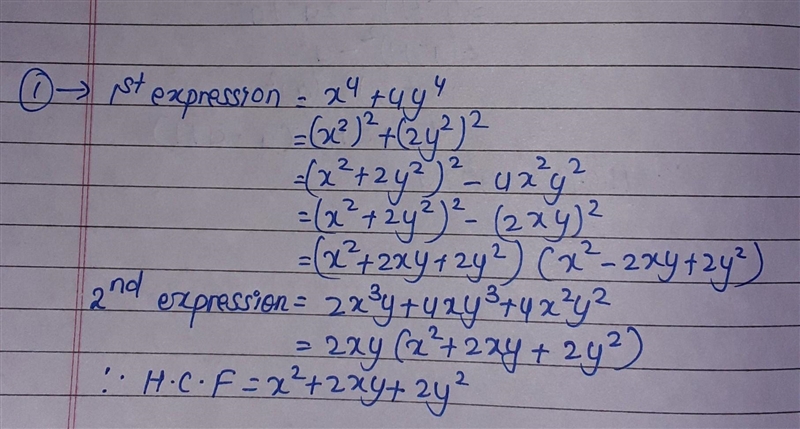 ① → 1st expression = x⁴ + 4y⁴
= (x²)² + (2y²)²
= (x² + 2y²)² - 4x²y²
= (x² + 2y²)² - (2xy)²
= (x² + 2xy + 2y²) (x² - 2xy + 2y²)
2nd expression = 2x³y + 4xy³ + 4x²y²
= 2xy (x² + 2xy + 2y²)
∵ H.C.F = x² + 2xy + 2y²